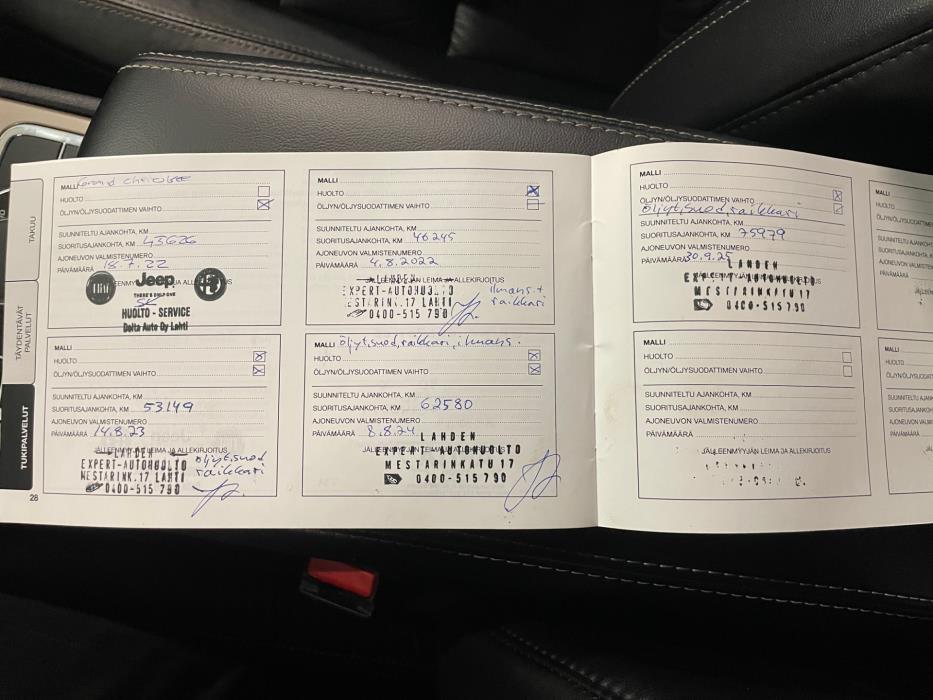 TAKUU
TÄYDENTÄVÄT
PALVELUT
TUKIPALVELUT
28
MALLI Grand Cherokee
HUOLTO
ÖLJYN/ÖLJYSUODATTIMEN VAIHTO
SUUNNITELTU AJANKOHTA, KM
SUORITUSAJANKOHTA, KM 43626
AJONEUVON VALMISTENUMERO
PÄIVÄMÄÄRÄ 18.7.22
Jeep
THERE'S ONLY ONE
HUOLTO - SERVICE
Delta Auto Oy Lahti
MALLI
HUOLTO
ÖLJYN/ÖLJYSUODATTIMEN VAIHTO
SUUNNITELTU AJANKOHTA, KM
SUORITUSAJANKOHTA, KM 46245
AJONEUVON VALMISTENUMERO
PÄIVÄMÄÄRÄ 4.8.2022
JÄLLEENMYYJÄN LEIMA JA ALLEKIRJOITUS
LAHDEN
EXPERT-AUTOHUOLTO
MESTARINK.17 LAHTI
0400-515 790
ilmans.+
raikkari
MALLI
HUOLTO
ÖLJYN/ÖLJYSUODATTIMEN VAIHTO
SUUNNITELTU AJANKOHTA, KM
SUORITUSAJANKOHTA, KM 53149
AJONEUVON VALMISTENUMERO
PÄIVÄMÄÄRÄ 14.8.23
JÄLLEENMYYJÄN LEIMA JA ALLEKIRJOITUS
LAHDEN
EXPERT-AUTOHUOLTO
MESTARINK.17 LAHTI
0400-515 790
öljyt, suod
raikkari
MALLI öljyt, suod, raikkari, ilmans.
HUOLTO
ÖLJYN/ÖLJYSUODATTIMEN VAIHTO
SUUNNITELTU AJANKOHTA, KM
SUORITUSAJANKOHTA, KM 62580
AJONEUVON VALMISTENUMERO
PÄIVÄMÄÄRÄ 8.8.24
JÄLLEENMYYJÄN LEIMA JA ALLEKIRJOITUS
LAHDEN
EXPERT-AUTOHUOLTO
MESTARINKATU 17
0400-515790
MALLI
HUOLTO
ÖLJYN/ÖLJYSUODATTIMEN VAIHTO
öljyt, suod, raikkari
SUUNNITELTU AJANKOHTA, KM
SUORITUSAJANKOHTA, KM 75979
AJONEUVON VALMISTENUMERO
PÄIVÄMÄÄRÄ 30.9.25
JÄLLEENMYYJÄN LEIMA JA ALLEKIRJOITUS
LAHDEN
EXPERT-AUTOHUOLTO
MESTARINKATU 17
0400-515790
MALLI
HUOLTO
ÖLJYN/ÖLJYSUODATTIMEN VAIHTO
SUUNNITELTU AJANKOHTA, KM
SUORITUSAJANKOHTA, KM
AJONEUVON VALMISTENUMERO
PÄIVÄMÄÄRÄ
JÄLLEENMYYJÄN LEIMA JA ALLEKIRJOITUS
MALLI
HUOLTO
MALLI
HUOLTO